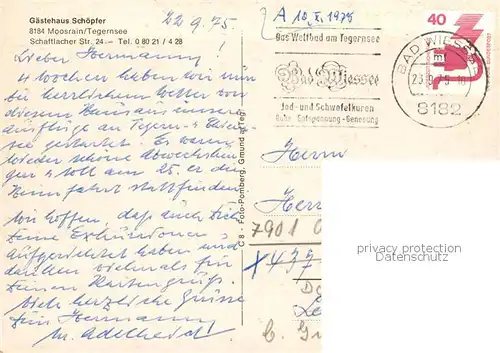 Gästehaus Schöpfer
8184 Moosrain/Tegernsee
Schaftlacher Str. 24 — Tel. 0 80 21 / 4 28
22.9.75
Lieber Hermann,
4 Wochen haben wir nun
bei herrlichem Wetter von
diesem Haus aus unsere
Ausflüge an Tegern- + Chiem-
see gestartet. Es waren
wieder schöne Abwechslun-
gen + soll am 25. er die
Heimfahrt stattfinden
Wir hoffen, daß auch Dich
Deine Exkursionen
aufgerichtet haben und
danken vielmals für
Deinen Kartengruß.
Viele herzliche Grüsse
Dein Hermann
u. Adelheid!
C 8 - Foto-Pomberg, Gmund a. Teg.
A 10.X.1975
Das Weltbad am Tegernsee
Bad Wiessee
Jod- und Schwefelkuren
Ruhe - Entspannung - Genesung
BAD WIESSEE
23.9.75
8182
40
Herrn
7901
437
privacy protection
Datenschutz